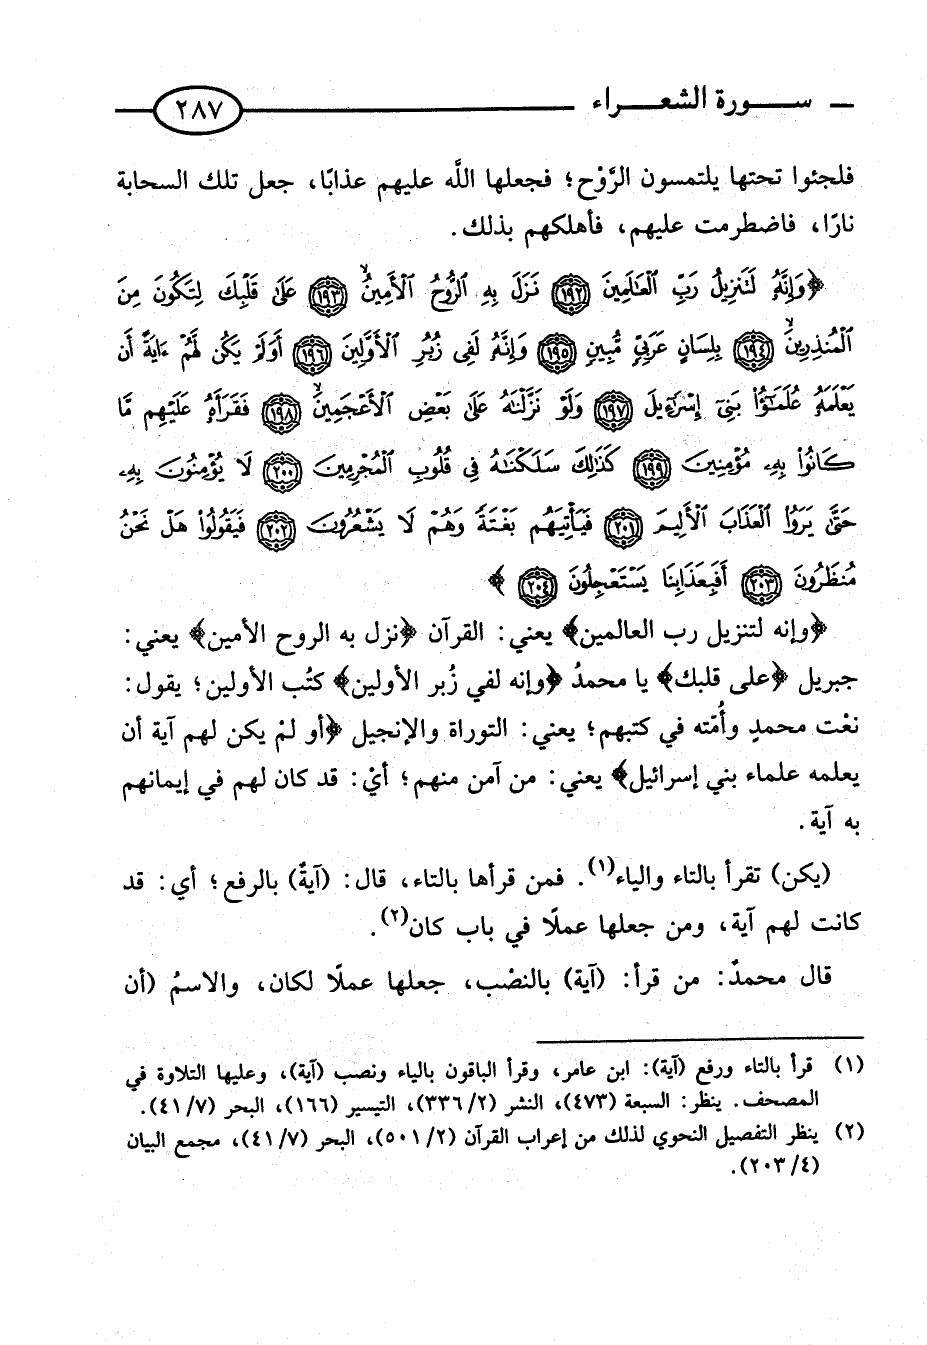 سورة الشعراء ٢٨٧
فلجئوا تحتها يلتمسون الرَّوْح؛ فجعلها اللَّه عليهم عذابًا، جعل تلك السحابة
نارًا، فاضطرمت عليهم، فأهلكهم بذلك.
﴿وَإِنَّهُۥ لَتَنزِيلُ رَبِّ ٱلْعَٰلَمِينَ ١٩٢ نَزَلَ بِهِ ٱلرُّوحُ ٱلْأَمِينُ ١٩٣ عَلَىٰ قَلْبِكَ لِتَكُونَ مِنَ
ٱلْمُنذِرِينَ ١٩٤ بِلِسَانٍ عَرَبِىٍّ مُّبِينٍ ١٩٥ وَإِنَّهُۥ لَفِى زُبُرِ ٱلْأَوَّلِينَ ١٩٦ أَوَلَمْ يَكُن لَّهُمْ ءَايَةً أَن
يَعْلَمَهُۥ عُلَمَٰٓؤُا۟ بَنِىٓ إِسْرَٰٓءِيلَ ١٩٧ وَلَوْ نَزَّلْنَٰهُ عَلَىٰ بَعْضِ ٱلْأَعْجَمِينَ ١٩٨ فَقَرَأَهُۥ عَلَيْهِم مَّا
كَانُوا۟ بِهِۦ مُؤْمِنِينَ ١٩٩ كَذَٰلِكَ سَلَكْنَٰهُ فِى قُلُوبِ ٱلْمُجْرِمِينَ ٢٠٠ لَا يُؤْمِنُونَ بِهِۦ
حَتَّىٰ يَرَوُا۟ ٱلْعَذَابَ ٱلْأَلِيمَ ٢٠١ فَيَأْتِيَهُم بَغْتَةً وَهُمْ لَا يَشْعُرُونَ ٢٠٢ فَيَقُولُوا۟ هَلْ نَحْنُ
مُنظَرُونَ ٢٠٣ أَفَبِعَذَابِنَا يَسْتَعْجِلُونَ ٢٠٤ ﴾
﴿وإنه لتنزيل رب العالمين﴾ يعني: القرآن ﴿نزل به الروح الأمين﴾ يعني:
جبريل ﴿على قلبك﴾ يا محمدُ ﴿وإنه لفي زُبر الأولين﴾ كتُب الأولين؛ يقول:
نعْت محمدٍ وأُمّته في كتبهم؛ يعني: التوراة والإنجيل ﴿أو لمْ يكن لهم آية أن
يعلمه علماء بني إسرائيل﴾ يعني: من آمن منهم؛ أيْ: قد كان لهم في إيمانهم
به آية.
(يكن) تقرأ بالتاء والياء(١). فمن قرأها بالتاء، قال: (آيةٌ) بالرفع؛ أي: قد
كانت لهم آية، ومن جعلها عملًا في باب كان(٢).
قال محمدٌ: من قرأ: (آية) بالنصْب، جعلها عملًا لكان، والاسمُ (أن
(١) قرأ بالتاء ورفع (آية): ابن عامر، وقرأ الباقون بالياء ونصب (آية)، وعليها التلاوة في
المصحف. ينظر: السبعة (٤٧٣)، النشر (٢/ ٣٣٦)، التيسير (١٦٦)، البحر (٧/ ٤١).
(٢) ينظر التفصيل النحوي لذلك من إعراب القرآن (٢/ ٥٠١)، البحر (٧/ ٤١)، مجمع البيان
(٤/ ٢٠٣).